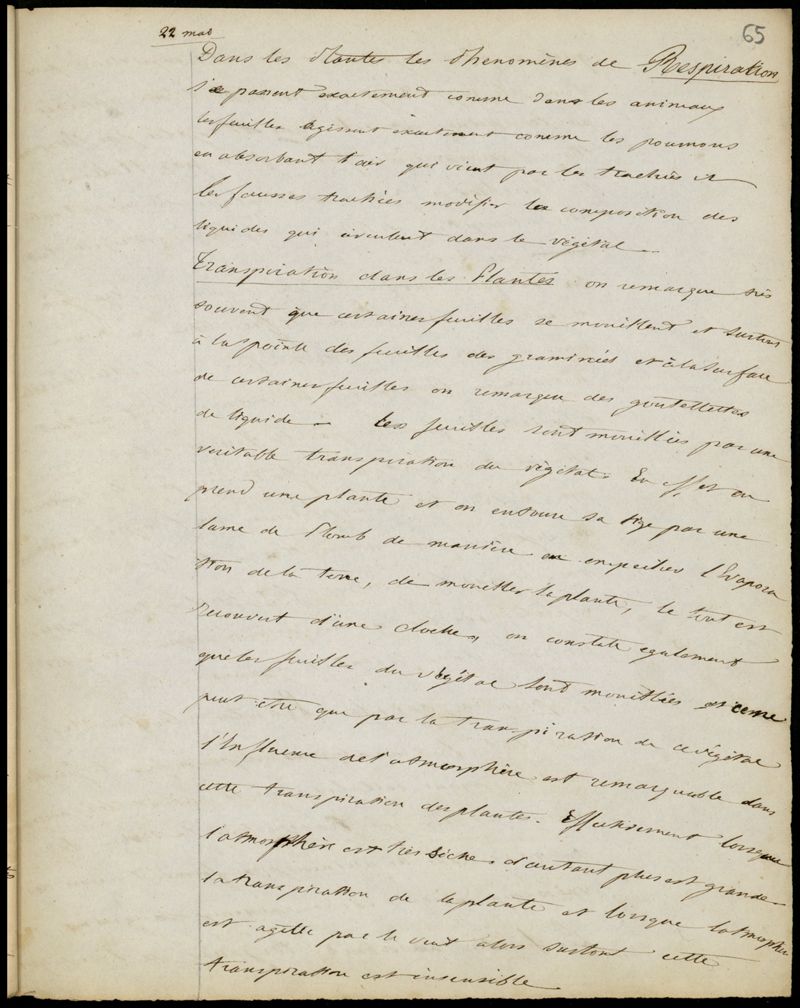 65
22 mas
Dans les Plantes les Phenomènes de Respiration
se passent exactement comme dans les animaux
les feuilles agissent exactement comme les poumons
en absorbant l'air qui vient par les trachées et
les fausses trachées modifier la composition des
liquides qui circulent dans le végétal.
Transpiration dans les Plantes on remarque très
souvent que certaines feuilles se mouillent et surtout
à la pointe des feuilles des graminées et à la surface
de certaines feuilles on remarque des goutelettes
de liquide. Les feuilles sont mouillées par une
veritable transpiration du végétal. En effet on
prend une plante et on entoure sa tige par une
lame de Plomb de manière a empecher l'Evapora
tion de la terre, de mouiller la plante, le tout est
recouvert d'une cloche, on constate egalement
que les feuilles du végétal sont mouillées et ce ne
peut être que par la transpiration de ce végétal
l'Influence de l'atmosphère est remarquable dans
cette transpiration des plantes. Effectivement lorsque
l'atmosphère est très sèche, d'autant plus est grande
la transpiration de la plante et lorsque l'atmosphère
est agitée par le vent alors surtout cette
transpiration est insensible